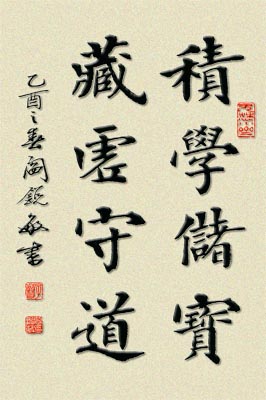 積學儲寶
藏虛守道
乙酉之春閻鋭敏書